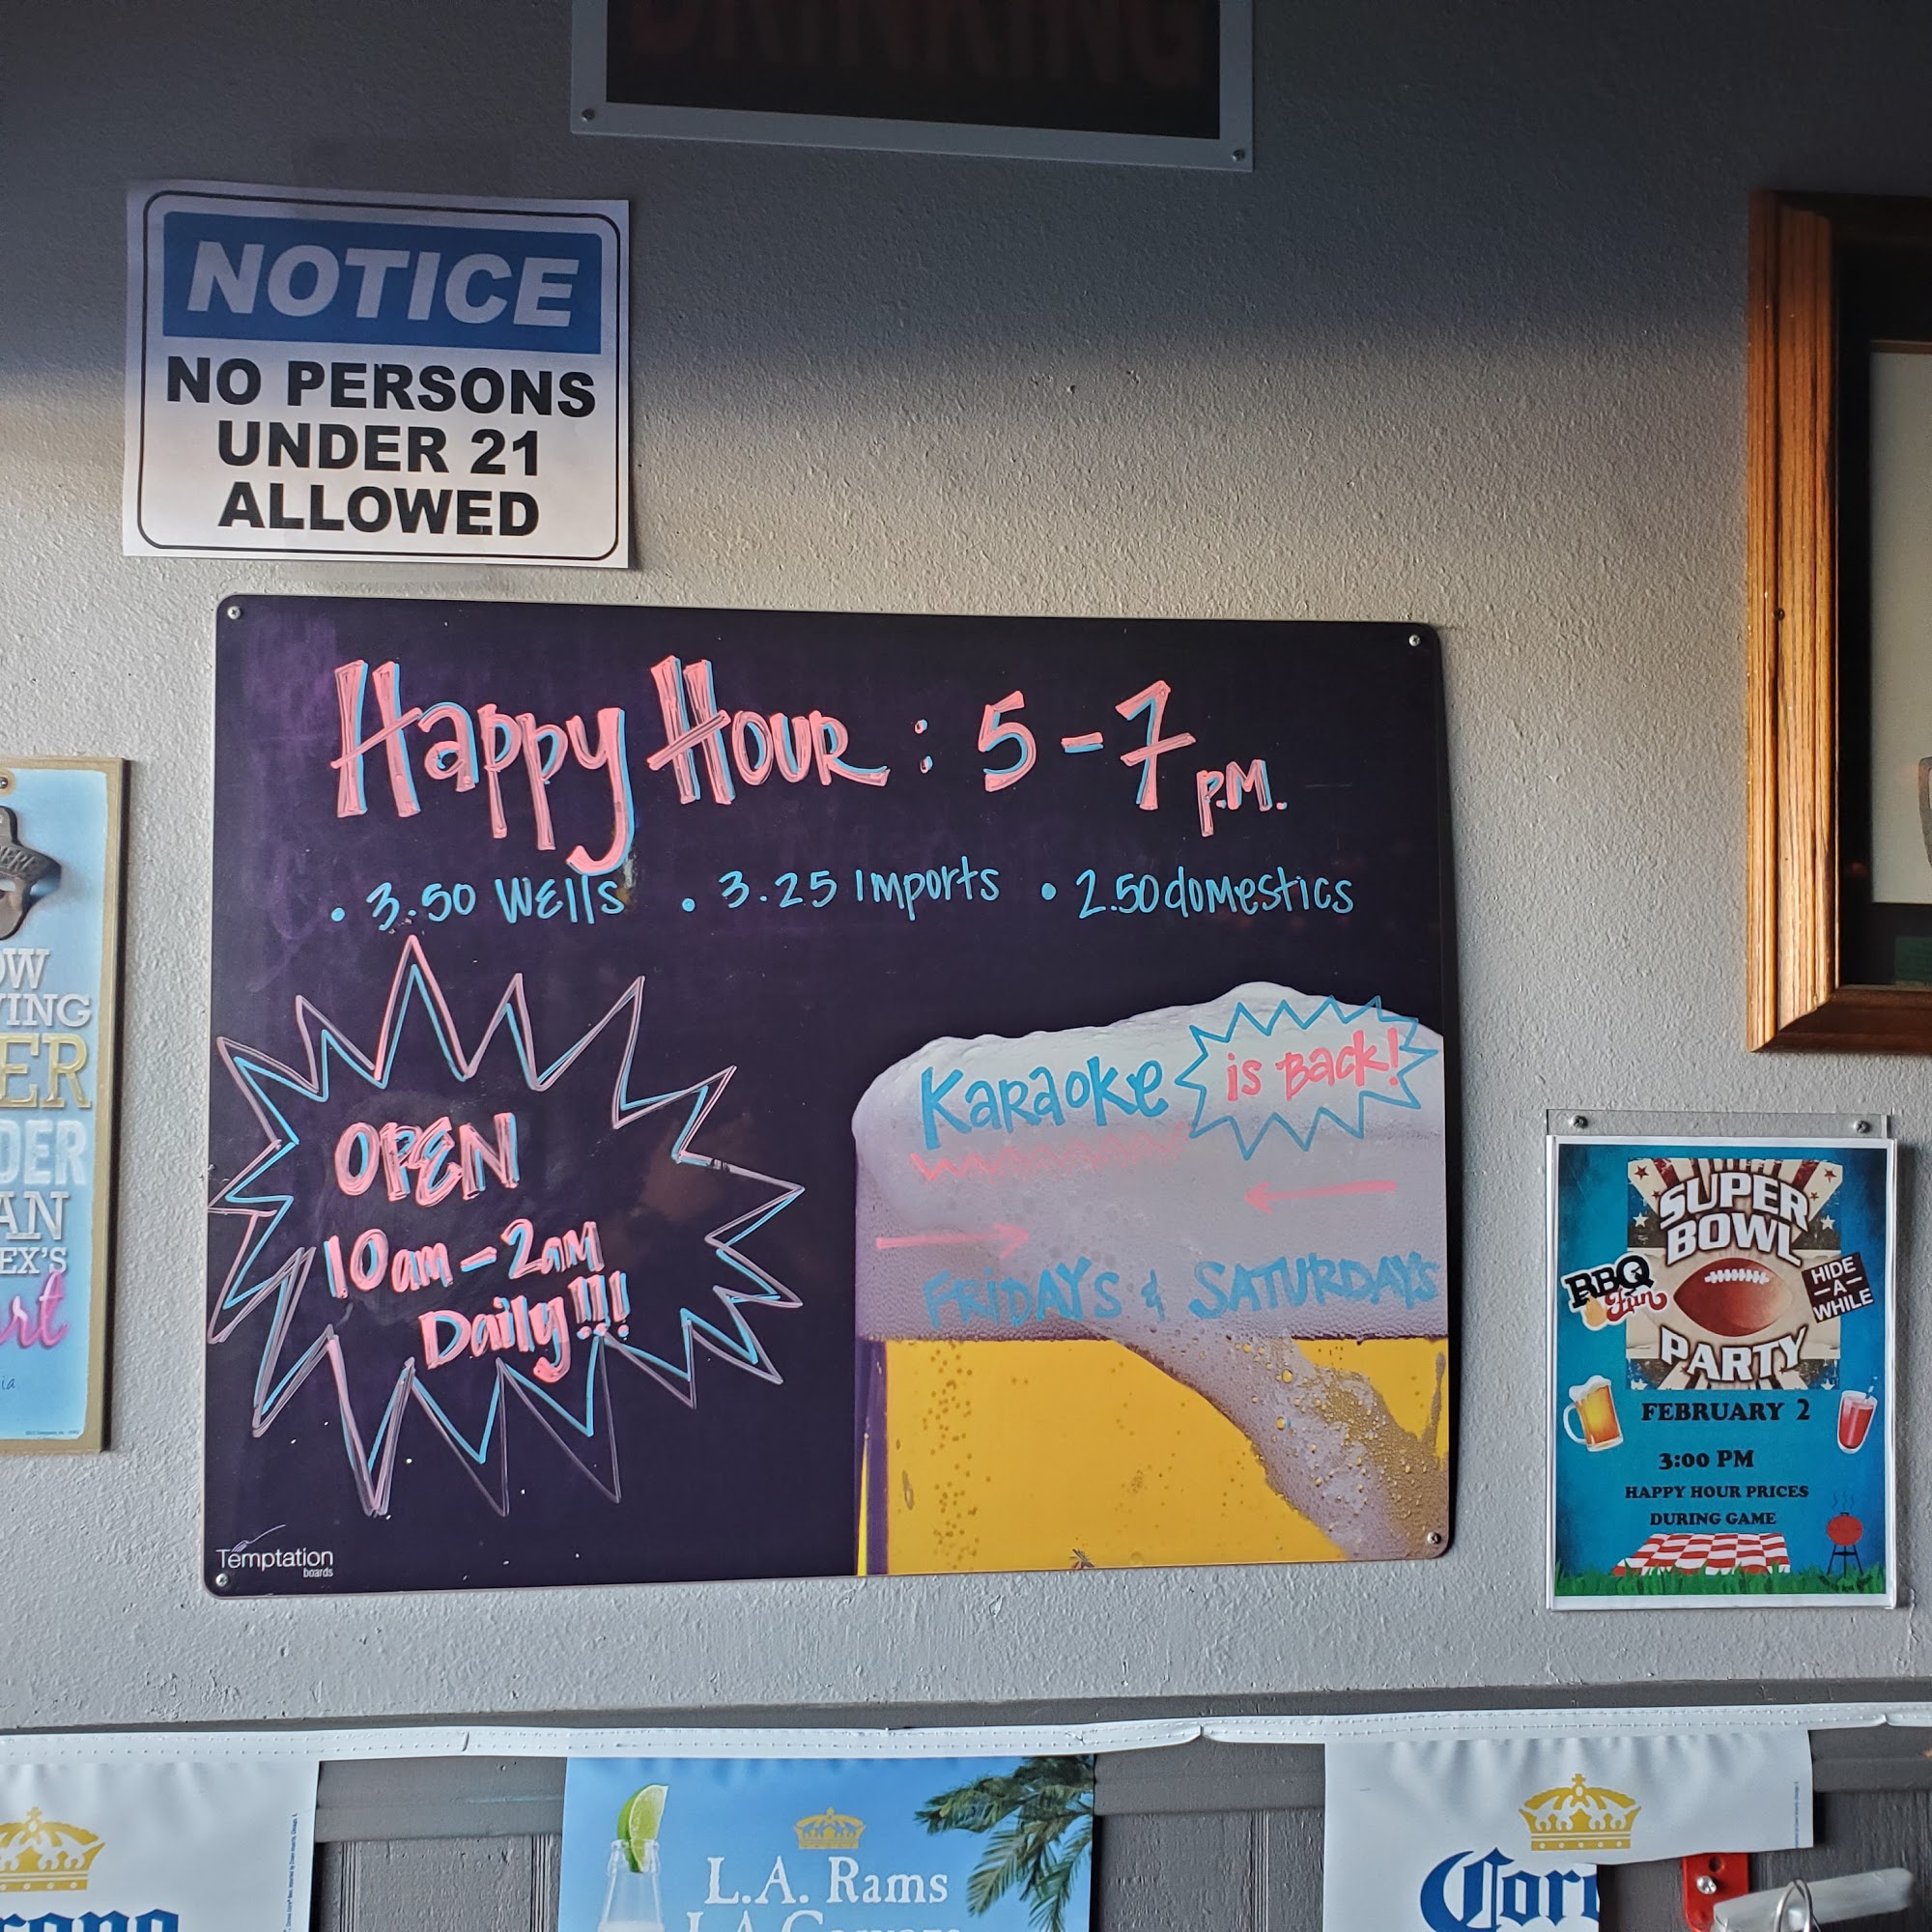 DRINKING
NOTICE
NO PERSONS
UNDER 21
ALLOWED
Happy Hour : 5-7 P.M.
• 3.50 Wells • 3.25 Imports • 2.50 domestics
OPEN
10am - 2am
Daily!!!
Karaoke is Back!
FRIDAYS & SATURDAYS
Temptation
boards
EX'S
SUPER
BOWL
BBQ
Fun
HIDE
-A-
WHILE
PARTY
FEBRUARY 2
3:00 PM
HAPPY HOUR PRICES
DURING GAME
L.A. Rams